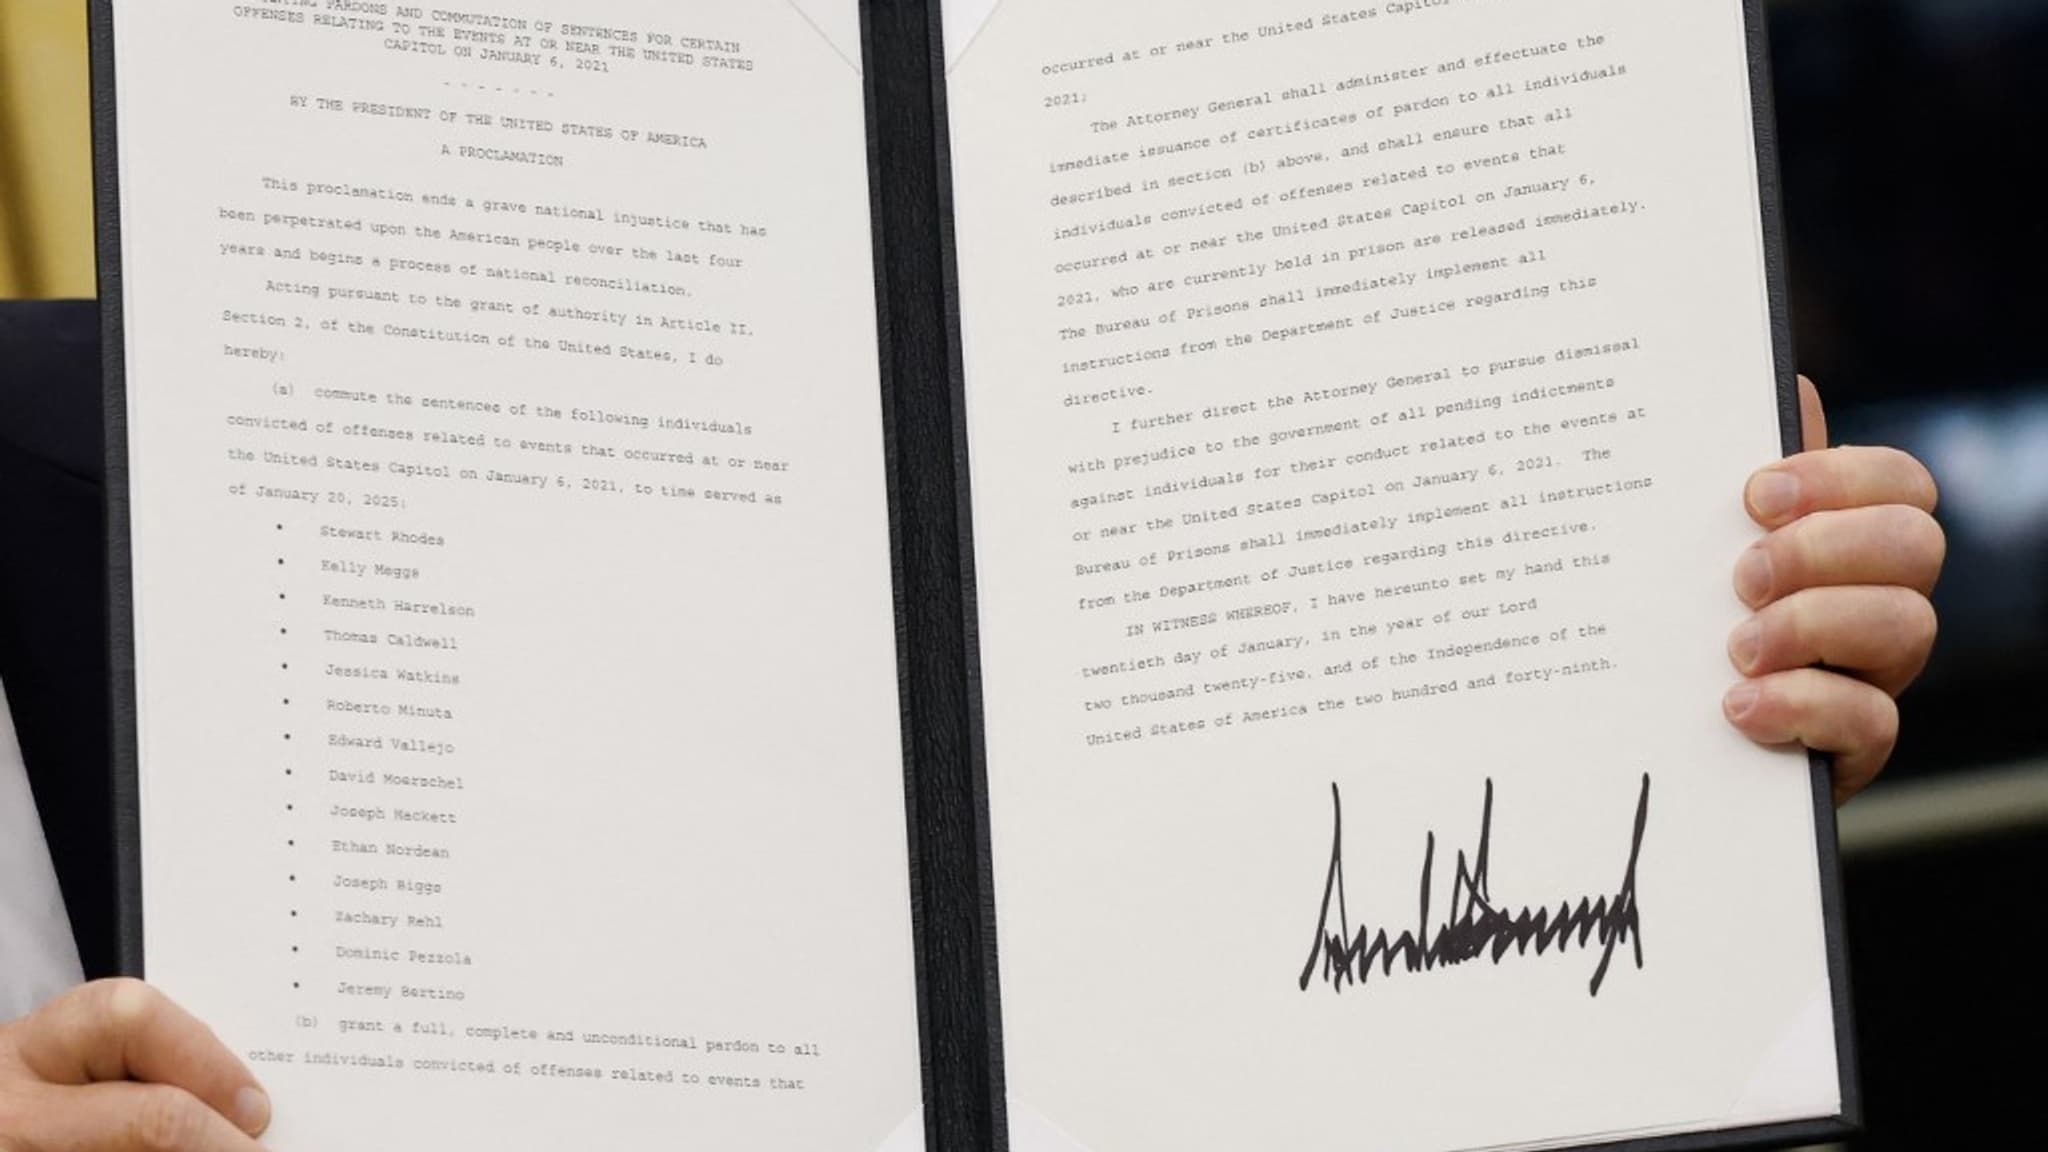 PARDONS AND COMMUTATION OF SENTENCES FOR CERTAIN
OFFENSES RELATING TO THE EVENTS AT OR NEAR THE UNITED STATES
CAPITOL ON JANUARY 6, 2021
- - - - - - -
BY THE PRESIDENT OF THE UNITED STATES OF AMERICA
A PROCLAMATION
This proclamation ends a grave national injustice that has
been perpetrated upon the American people over the last four
years and begins a process of national reconciliation.
Acting pursuant to the grant of authority in Article II,
Section 2, of the Constitution of the United States, I do
hereby:
(a) commute the sentences of the following individuals
convicted of offenses related to events that occurred at or near
the United States Capitol on January 6, 2021, to time served as
of January 20, 2025:
• Stewart Rhodes
• Kelly Meggs
• Kenneth Harrelson
• Thomas Caldwell
• Jessica Watkins
• Roberto Minuta
• Edward Vallejo
• David Moerschel
• Joseph Hackett
• Ethan Nordean
• Joseph Biggs
• Zachary Rehl
• Dominic Pezzola
• Jeremy Bertino
(b) grant a full, complete and unconditional pardon to all
other individuals convicted of offenses related to events that
occurred at or near the United States Capitol
2021;
The Attorney General shall administer and effectuate the
immediate issuance of certificates of pardon to all individuals
described in section (b) above, and shall ensure that all
individuals convicted of offenses related to events that
occurred at or near the United States Capitol on January 6,
2021, who are currently held in prison are released immediately.
The Bureau of Prisons shall immediately implement all
instructions from the Department of Justice regarding this
directive.
I further direct the Attorney General to pursue dismissal
with prejudice to the government of all pending indictments
against individuals for their conduct related to the events at
or near the United States Capitol on January 6, 2021. The
Bureau of Prisons shall immediately implement all instructions
from the Department of Justice regarding this directive.
IN WITNESS WHEREOF, I have hereunto set my hand this
twentieth day of January, in the year of our Lord
two thousand twenty-five, and of the Independence of the
United States of America the two hundred and forty-ninth.